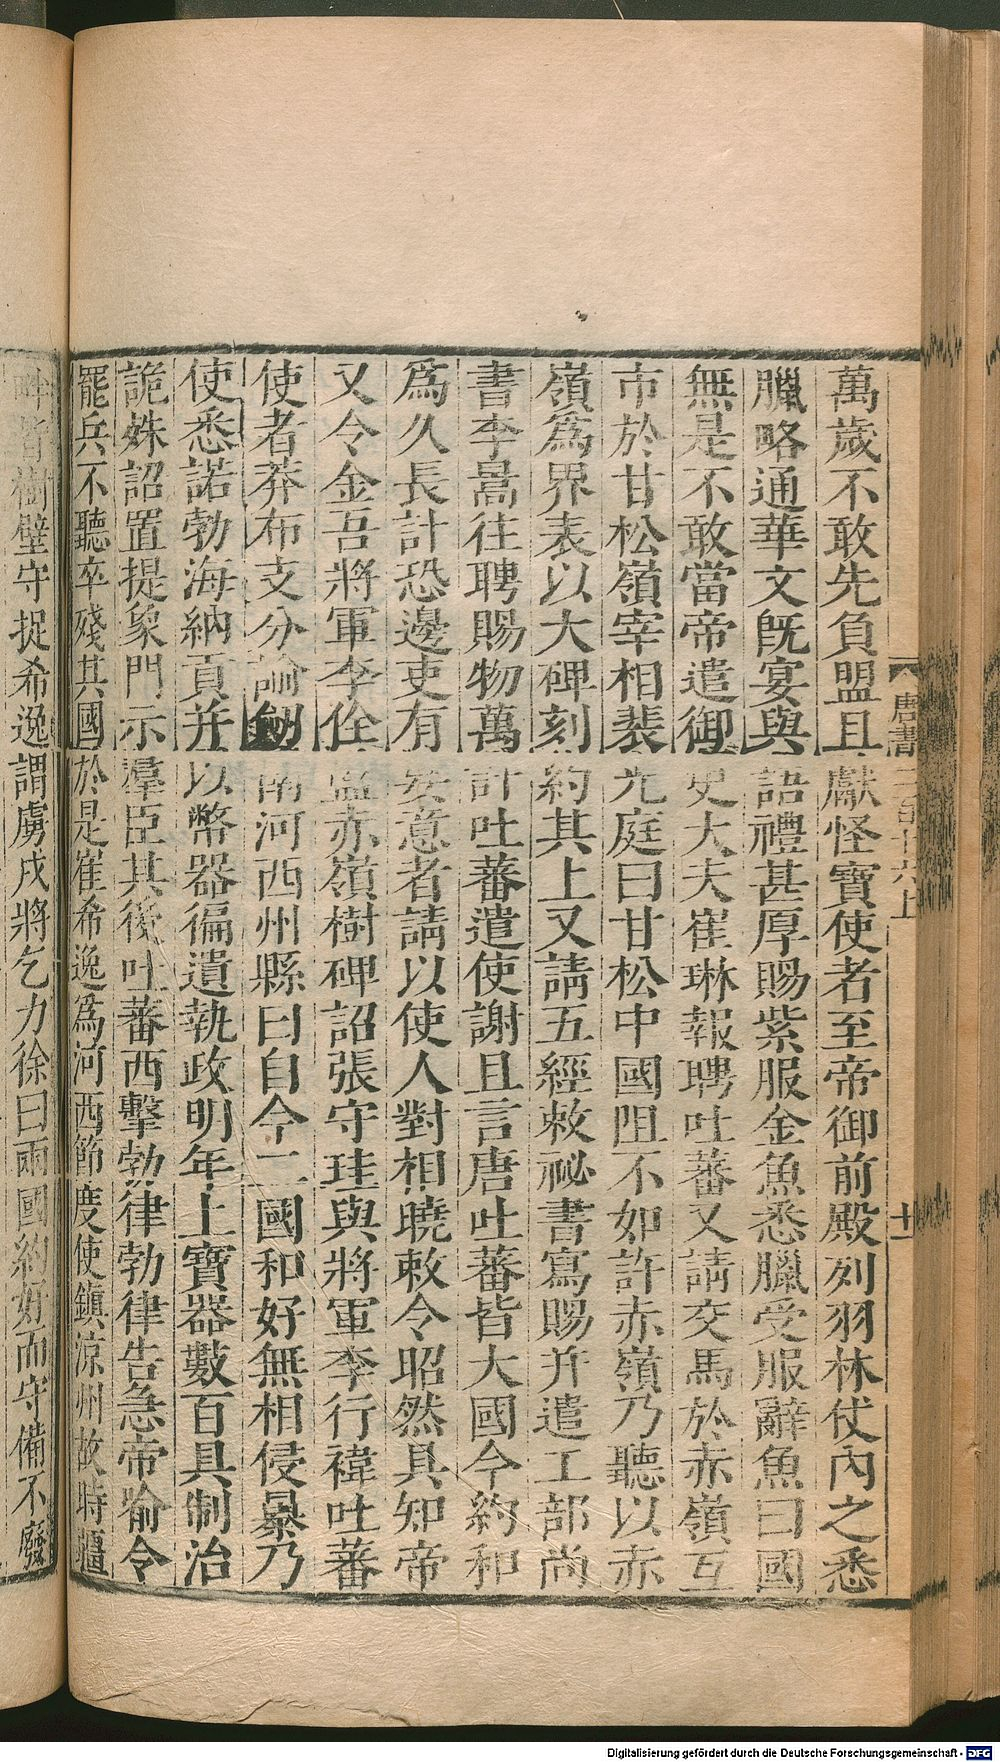 萬歲不敢先負盟且獻怪寶使者至帝御前殿列羽林仗內之悉
臘略通華文旣宴與語禮甚厚賜紫服金魚悉臘受服辭魚曰國
無是不敢當帝遣御史大夫崔琳報聘吐蕃又請交馬於赤嶺互
市於甘松嶺宰相裴光庭曰甘松中國阻不如許赤嶺乃聽以赤
嶺爲界表以大碑刻約其上又請五經敕祕書寫賜并遣工部尚
書李暠往聘賜物萬計吐蕃遣使謝且言唐吐蕃皆大國今約和
爲久長計恐邊吏有妄意者請以使人對相曉敕令昭然具知帝
又令金吾將軍李佺監赤嶺樹碑詔張守珪與將軍李行褘吐蕃
使者莽布支分諭劒南河西州縣曰自今二國和好無相侵暴乃
使悉諾勃海納貢并以幣器徧遺執政明年上寶器數百具制治
詭姝詔置提象門示羣臣其後吐蕃西擊勃律勃律告急帝喻令
罷兵不聽卒殘其國於是崔希逸爲河西節度使鎮涼州故時疆
畔皆樹壁守捉希逸謂虜戍將乞力徐曰兩國約好而守備不廢
唐書二百十六上
十一
Digitalisierung gefördert durch die Deutsche Forschungsgemeinschaft - DFG